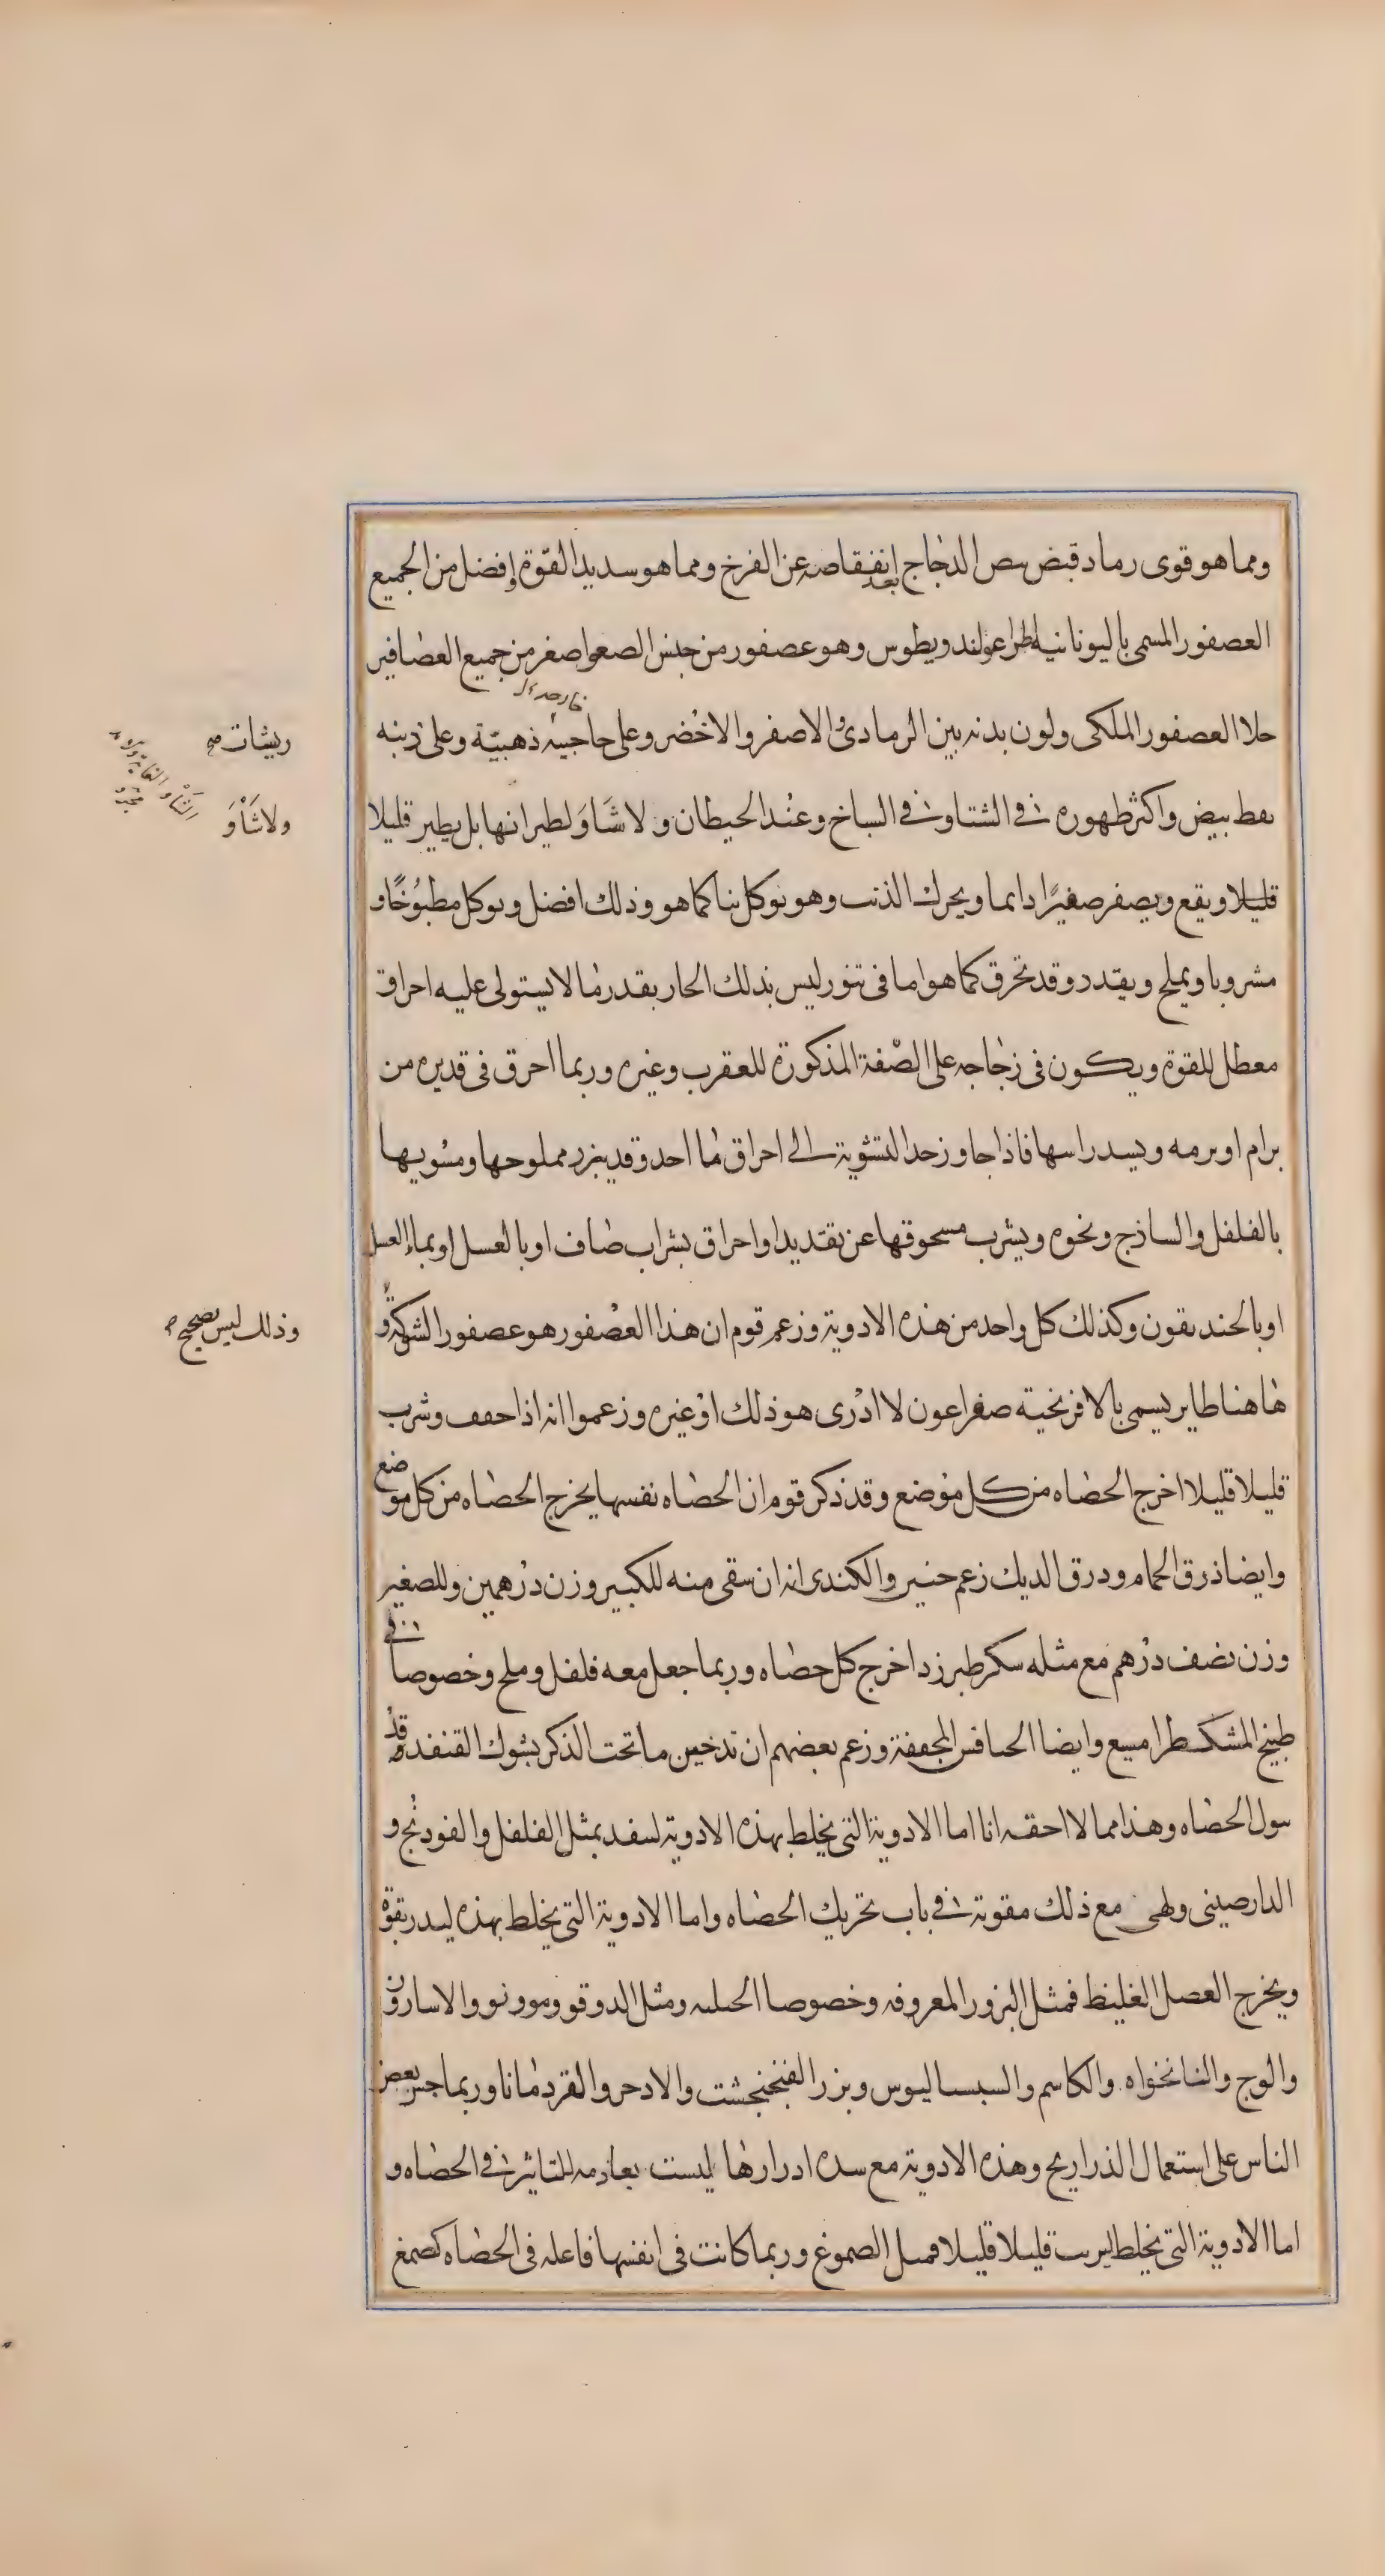 ومما هو قوى رماد قبض بيض الدجاج بعد انفقاصه عن الفرخ ومما هو شديد القوة افضل من الجميع
العصفور المسمى باليونانيه اطراغولنديطوس وهو عصفور من جنس الصعو اصغر من جميع العصافير
خلا العصفور الملكى ولون بدنه بين الرمادى والاصفر والاخضر وعلى حاجبيه ذهبية وعلى ذنبه
ريشات صح
نقط بيض واكثر ظهوره فى الشتا وفى السباخ وعند الحيطان ولا شاو لطيرانها بل يطير قليلا
ولا شأو
قليلا ويقع ويصفر صفيرًا دايما ويحرك الذنب وهو يوكل نيا كما هو وذلك افضل ويوكل مطبوخًا و
مشروبا ويملح ويقدد وقد تحرق كما هو اما فى تنور ليس بذلك الحار بقدر ما لا يستولى عليه احراق
معطل للقوة ويكون فى زجاجه على الصفة المذكورة للعقرب وغيره وربما احرق فى قديره من
برام او برمه ويسد راسها فاذا جاوز حد التشوية الى احراق ما احد وقد يبزر مملوحها ومشويها
بالفلفل والساذج ونحوه ويشرب مسحوقها عن تقديد او احراق بشراب صاف او بالعسل او بماء العسل
او بالخنديقون وكذلك كل واحد من هذه الادوية وزعم قوم ان هذا العصفور هو عصفور الشوكة و
وذلك ليس بصحيح
هاهنا طاير يسمى بالافرنجية صفراغون لا ادرى هو ذلك او غيره وزعموا انه اذا جفف وشرب
قليلا قليلا اخرج الحصاه من كل موضع وقد ذكر قوم ان الحصاه نفسها يخرج الحصاه من كل موضع
وايضا ذرق الحمام وذرق الديك زعم حنين والكندى انه ان سقى منه للكبير وزن درهمين وللصغير
وزن نصف درهم مع مثله سكر طبرزد اخرج كل حصاه وربما جعل معه فلفل وملح وخصوصا فى
طبيخ المشكطرامسيع وايضا الخنافس المجففة وزعم بعضهم ان تدخين ما تحت الذكر بشوك القنفد قد
يبول الحصاه وهذا مما لا احقه انا اما الادوية التى يخلط بهذه الادوية لتنفد بمثل الفلفل والفودنج و
الدارصينى وهى مع ذلك مقوية فى باب تحريك الحصاه واما الادوية التى يخلط بهذه ليدر بقوة
ويخرج الفضل الغليظ فمثل البزور المعروفه وخصوصا الحلبه ومثل الدوقو ومو وفو والاسارون
والوج والنانخواه والكاشم والسيساليوس وبزر الفنجنجشت والاذخر والقردمانا وربما جسر بعض
الناس على استعمال الذراريح وهذه الادوية مع شده ادرارها ليست بعادمه للتاثير فى الحصاه و
اما الادوية التى يخلط ليربث قليلا قليلا فمثل الصموغ وربما كانت فى انفسها فاعله فى الحصاه كصمغ